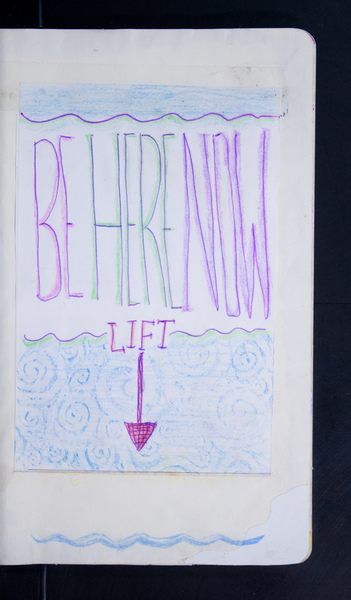 BE HERE NOW
LIFT